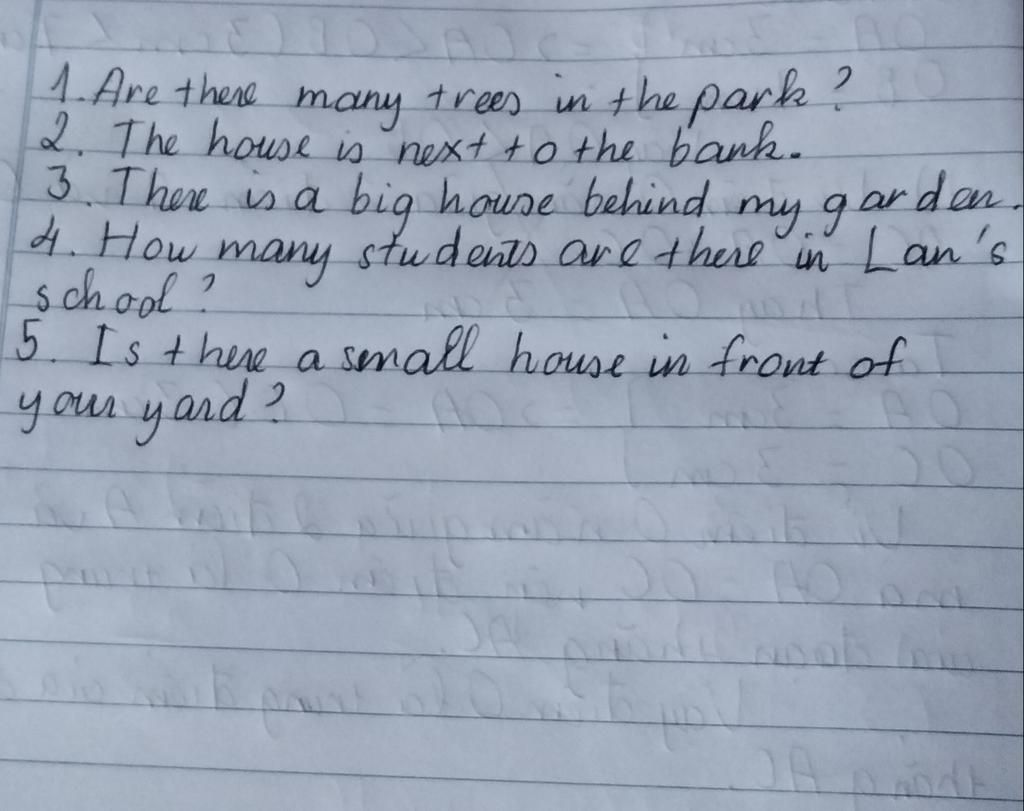 1. Are there many trees in the park?
2. The house is next to the bank.
3. There is a big house behind my garden.
4. How many students are there in Lan's
school?
5. Is there a small house in front of
your yard?